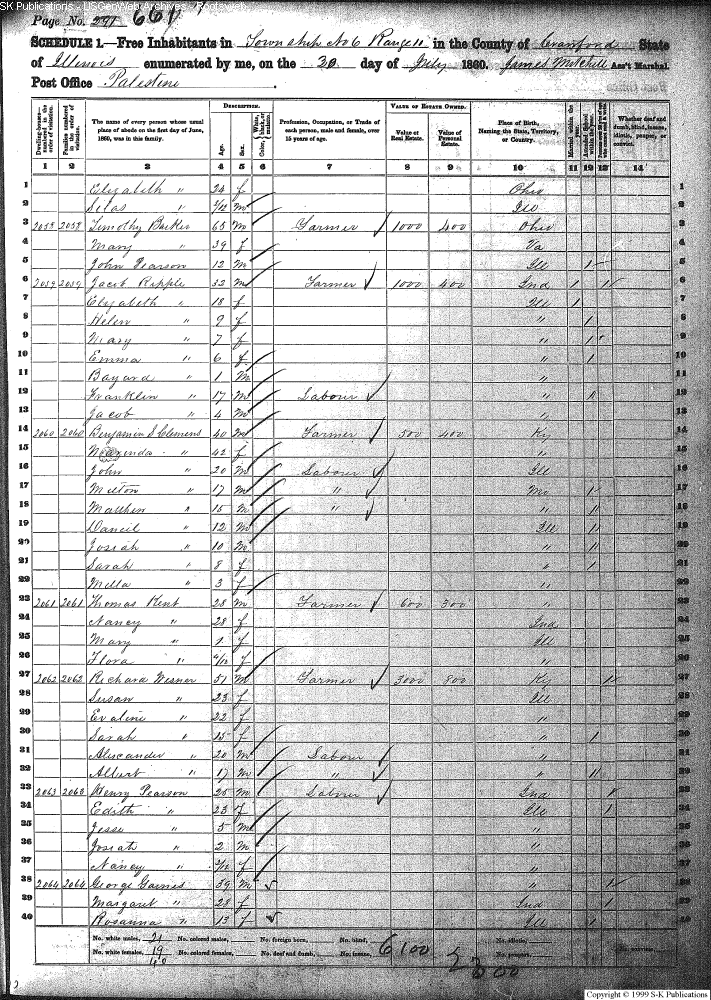 SK Publications - USGenWeb Archives - Rootsweb
Page No. 291 661
SCHEDULE 1.—Free Inhabitants in Township No 6 Range 11 in the County of Crawford State
of Illinois enumerated by me, on the 20 day of July 1860. James Mitchell Ass't Marshal.
Post Office Palestine
Dwelling-houses—numbered in the order of visitation.
Families numbered in the order of visitation.
The name of every person whose usual place of abode on the first day of June, 1860, was in this family.
DESCRIPTION.
Age.
Sex.
Color, White, black, or mulatto.
Profession, Occupation, or Trade of each person, male and female, over 15 years of age.
VALUE OF ESTATE OWNED.
Value of Real Estate.
Value of Personal Estate.
Place of Birth, Naming the State, Territory, or Country.
Married within the year.
Attended School within the year.
Whether deaf and dumb, blind, insane, idiotic, pauper, or convict.
1 2 3 4 5 6 7 8 9 10 11 12 13 14
1 Elizabeth " 24 f Ohio 1
2 Silas " m Ill 2
3 2058 2058 Timothy Barker 65 m Farmer 1000 400 Ohio 3
4 Mary " 39 f Va 4
5 John Pearson 12 m Ill 1 5
6 2059 2059 Jacob Ripple 32 m Farmer 1000 400 Ind 1 1 6
7 Elizabeth " 18 f Ill 1 7
8 Helen " 9 f " 1 8
9 Mary " 7 f " 1 9
10 Emma " 6 f " 1 10
11 Bayard " 1 m " 11
12 Franklin " 17 m Labour " 1 12
13 Jacob " 4 m " 13
14 2060 2060 Benjamin S Clemens 40 m Farmer 500 400 Ky 14
15 " 42 f " 15
16 John " 20 m Labour Ill 16
17 Milton " 17 m " Mo 1 17
18 Matthew " 15 m " " 1 18
19 Daneil " 12 m Ill 1 19
20 Josiah " 10 m " 1 20
21 Sarah " 8 f " 1 21
22 Milla " 3 f " 22
23 2061 2061 Thomas Kent 28 m Farmer 600 300 " 23
24 Nancy " 28 f Ind 24
25 Mary " f Ill 25
26 Flora " f " 26
27 2062 2062 Richard Wesner 51 m Farmer 3000 800 Ky 1 27
28 Susan " 23 f Ill 28
29 Evaline " 22 f " 29
30 Sarah " 15 f 1 30
31 Alexander " 20 m Labour " 31
32 Albert " 17 m " " 1 32
33 2063 2063 Henry Pearson 25 m Labour Ind 33
34 Edith " 23 f Ill 1 34
35 Jesse " 5 m " 35
36 Josiah " 2 m " 36
37 Nancy " f " 37
38 2064 2064 George Gaines 39 m " 1 38
39 Margaret " 28 f Ind 1 39
40 Rosanna " 13 f Ill 1 40
No. white males, 21 No. colored males, No. foreign born, No. blind, No. idiotic,
No. white females, 19 No. colored females, No. deaf and dumb, No. insane, No. paupers, No. convicts,
40 6100
Copyright © 1999 S-K Publications